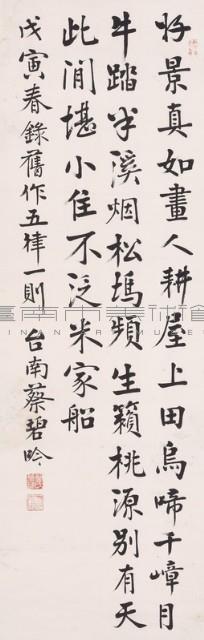 好景真如畫人耕屋上田烏啼千嶂月
牛踏半溪烟松塢頻生籟桃源別有天
此間堪小住不泛米家船
戊寅春錄舊作五律一則 台南蔡碧吟
臺南市美術館